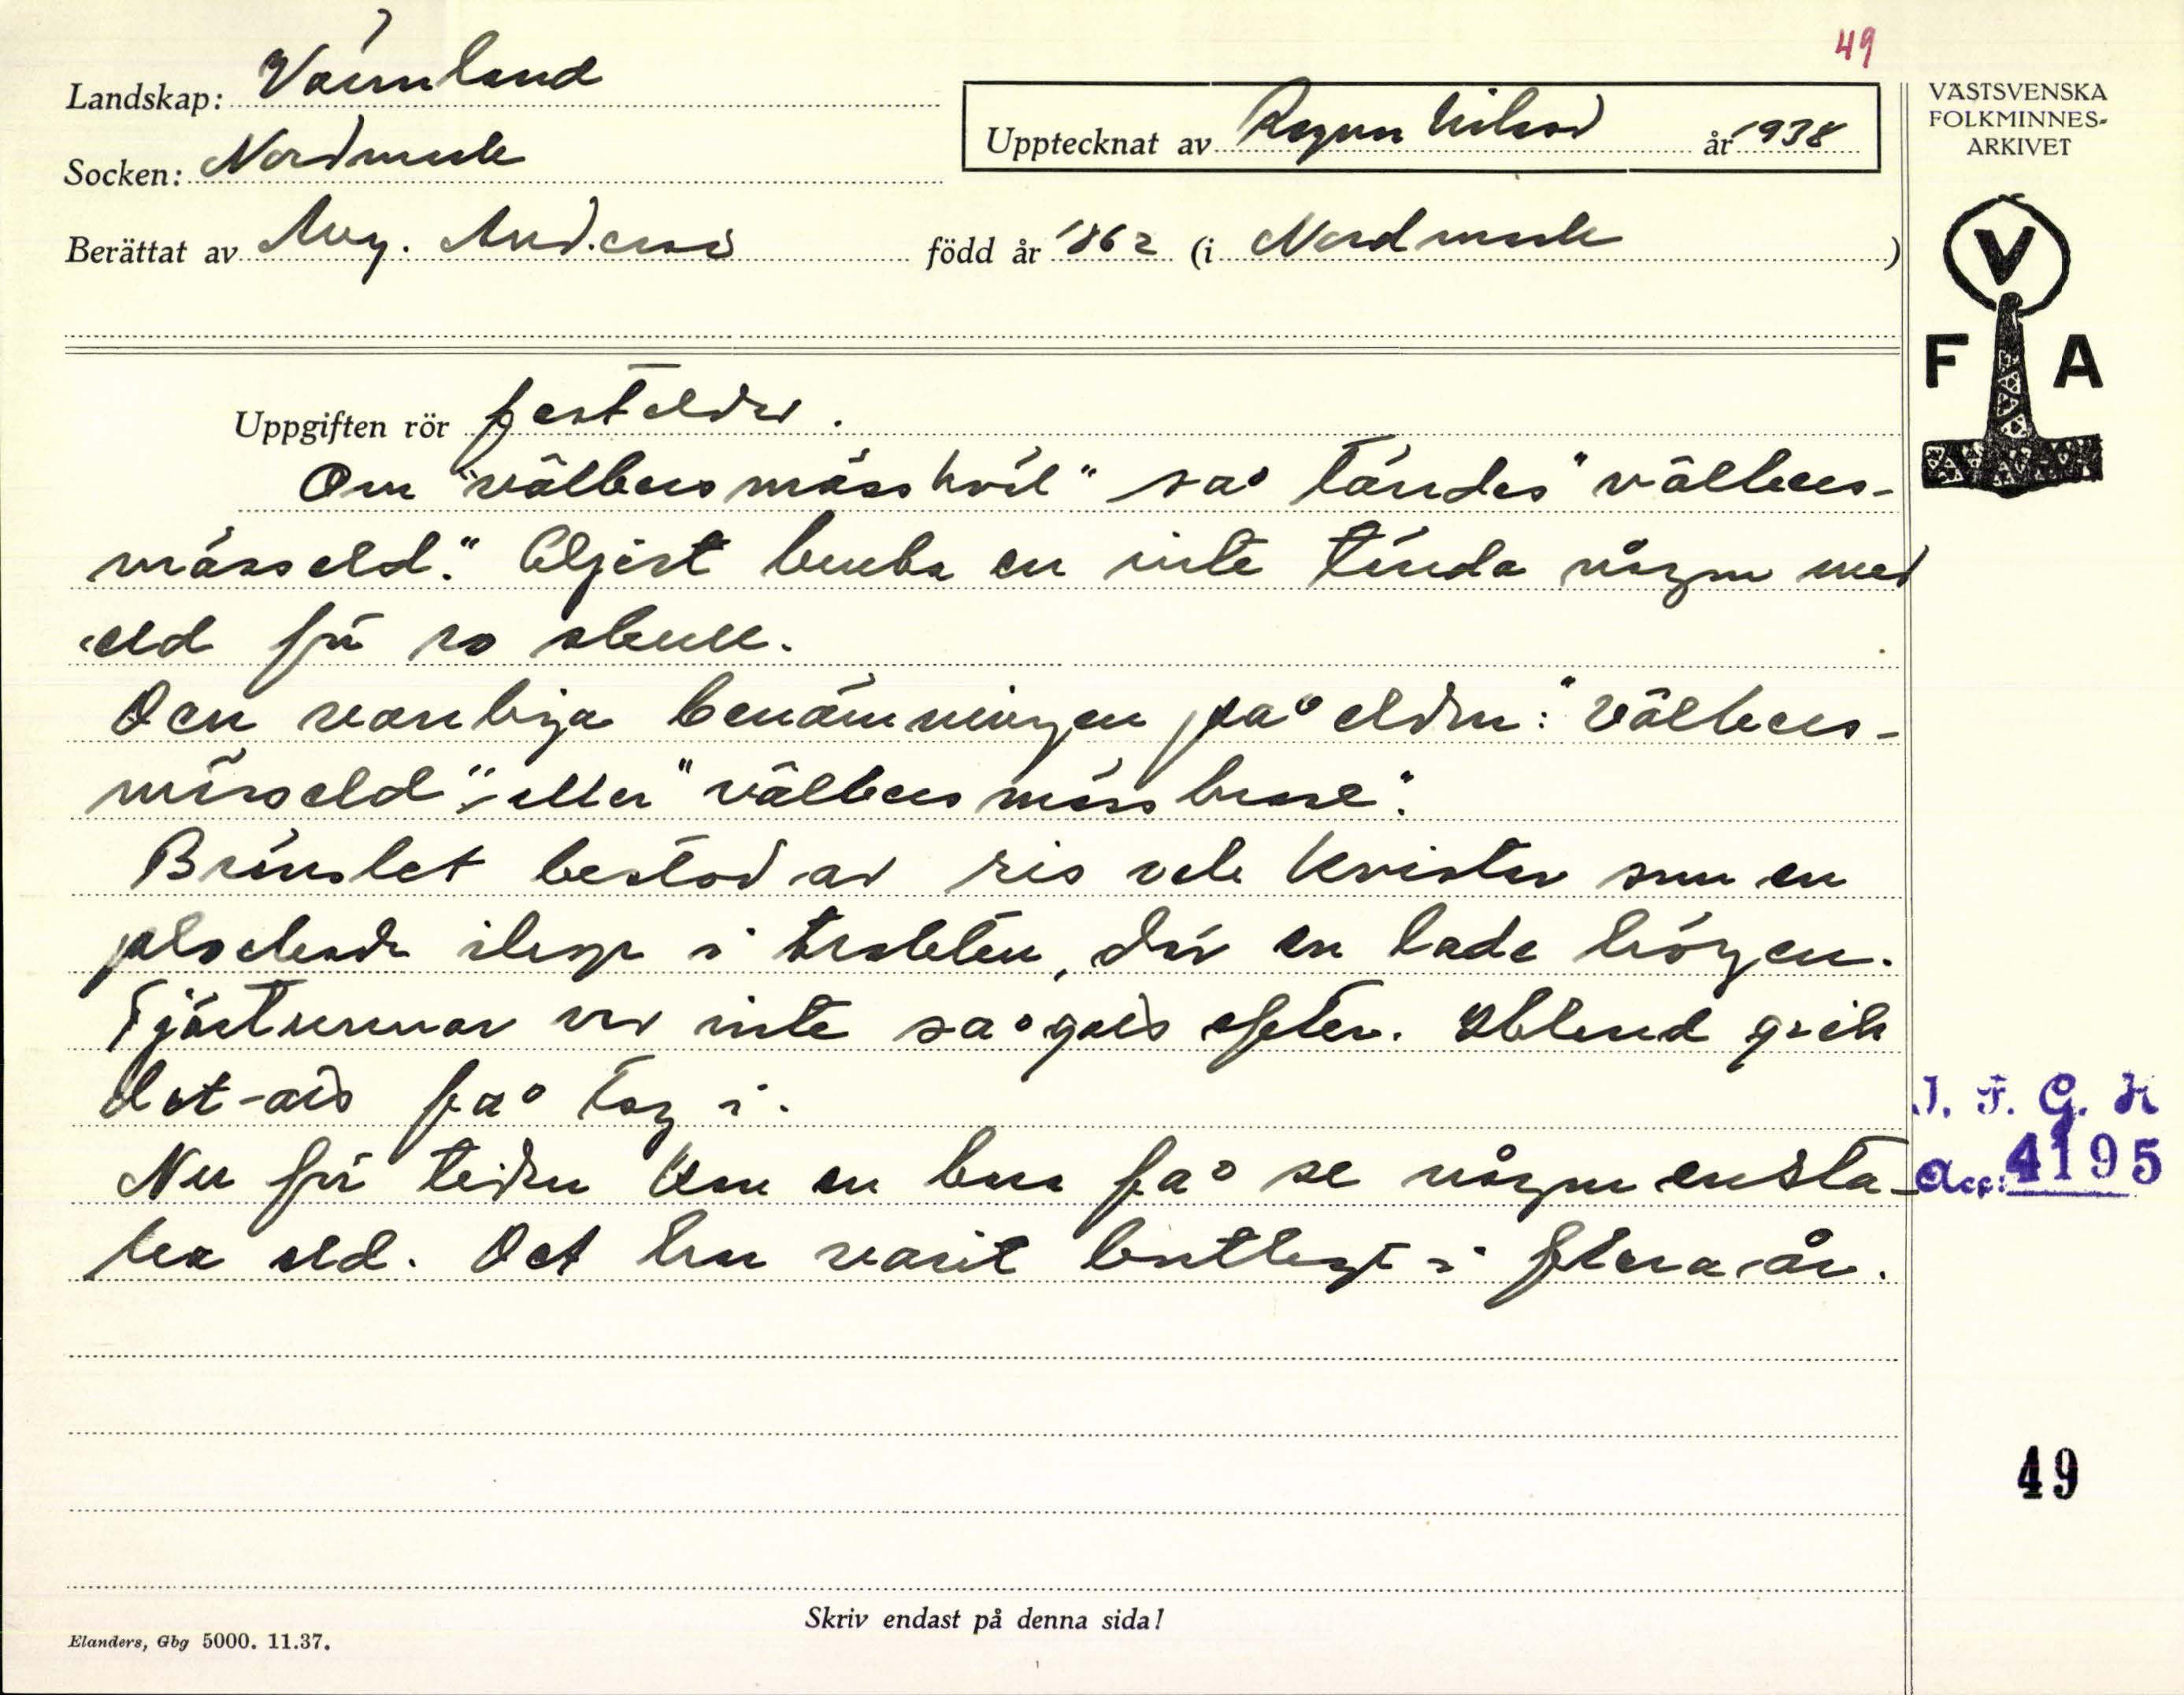 49
Landskap: Värmland
Socken: Nordmark
Upptecknat av Ragnar Nilsson år 1938
Berättat av Aug. Andersson född år 1862 (i Nordmark)
VÄSTSVENSKA
FOLKMINNES-
ARKIVET
V
F A
Uppgiften rör fasteldar.
Om "välbersmässkväl" så tändes "välbers-
mässeld." Eljest bruka en inte tända någon
eld för ro skull.
Den vanliga benämningen på elden: "Välbers-
mässeld" eller "välbersmässbrase".
Bränslet bestod av ris och kvistar som en
plockade ihop i trakten, där en lade högen.
Tjärtunnor var inte så god efter. Ibland gick
det att få tag i.
Nu för tiden kan en bara få se någon ensta-
ka eld. Det har varit bortlagt i flera år.
I. F. G. H
Acc. 4195
49
Skriv endast på denna sida!
Elanders, Gbg 5000. 11.37.